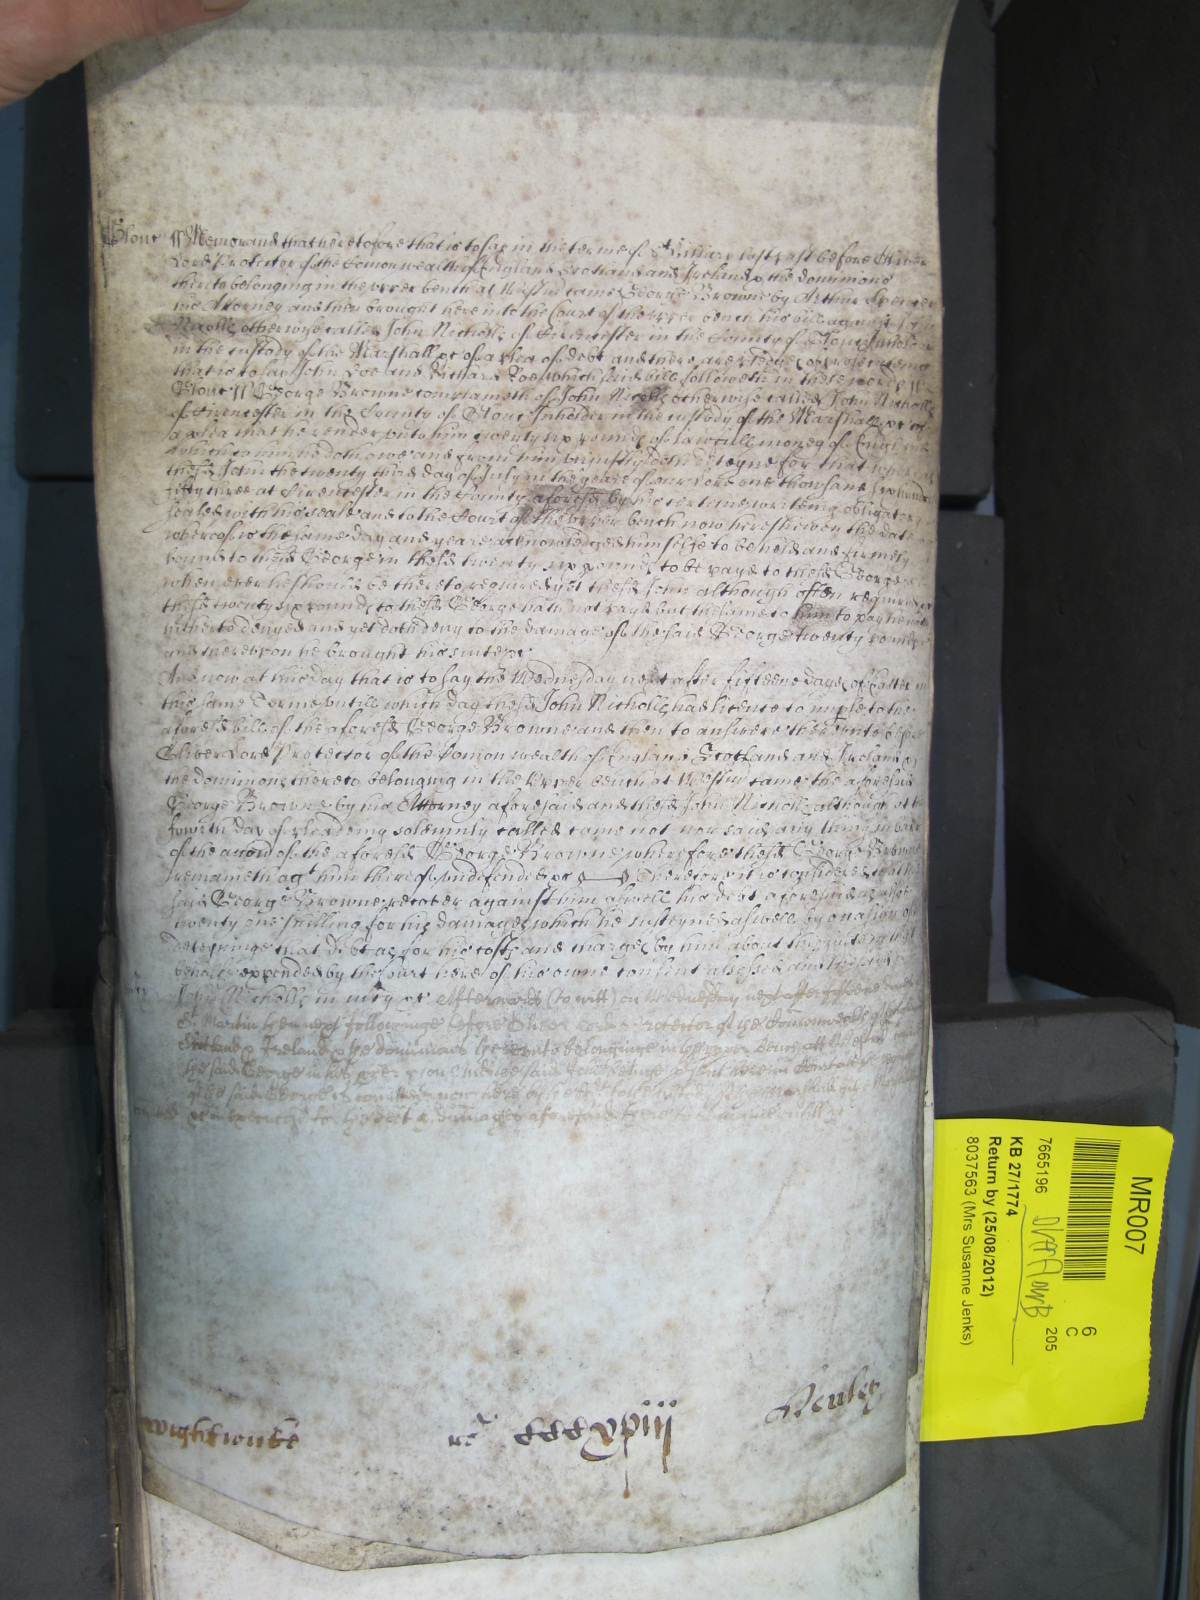 Glouc ss Memorand that heretofore that is to say in the terme of St Hillary last past before Oliver
Lord Protector of the Comonwealth of England Scotland and Ireland & the dominions
thereto belonging in the upper bench at Westm came George Browne by Arthur
his Attorney and then brought here into the Court of the upper bench his bill against John
Nicolls otherwise called John Nicholls of Cirencester in the County of Glouc Inholder
in the custody of the Marshall &c of a plea of debt and there are pledges of prosecuting
that is to say John Doe and Richard Roe which said bill followeth in these words ss
Glouc ss George Browne complaineth of John Nicolls otherwise called John Nicholls
of Cirencester in the County of Glouc Inholder in the custody of the Marshall &c of
a plea that he render unto him twenty six pounds of lawfull money of England
which to him he doth owe and from him unjustly doth deteyne for that
the sd John the twenty third day of July in the yeare of our Lord one thousand six hundred
fifty three at Cirencester in the County aforesd by his certeine writeing obligatory
sealed with his seale and to the Court of the upper bench now here shewen the date
whereof is the same day and yeare acknowledged himselfe to be held and firmely
bound to the sd George in the sd twenty six pounds to be payd to the sd George
when ever he should be thereto required yet the sd John although often required
the sd twenty six pounds to the sd George hath not payd but the same to him to pay he hath
hitherto denyed and yet doth deny to the damage of the said George twenty pounds
and thereupon he brought his suite &c
And now at this day that is to say the Wednesday next after fifteene dayes of Easter in
this same Terme untill which day the sd John Nicholls had licence to imple to the
aforesd bill of the aforesd George Browne and then to answere thereunto before
Oliver Lord Protector of the Comon wealth of England Scotland and Ireland &
the dominions thereto belonging in the Upper bench at Westm came the aforesaid
George Browne by his Attorney aforesaid and the sd John Nicholls although at the
fowrth day of pleading solemnly called came not nor said any thing in barr
of the accon of the aforesd George Browne wherefore the sd George Browne
remaineth agt him thereof undefended &c Therefore it is considered that the
said George Browne recover against him aswell his debt aforesaid as also
twenty one shilling for his damages which he susteyned aswell by occasion of
deteyninge that debt as for his costs and charges by him about his suite in that
behalfe expended by the Court here of his owne consent assessed and the said
John Nicholls in mercy &c Afterwards (to witt) on Wednesday next after fifteene dayes
St Martin then next followinge before Oliver Lord Protector of the Comonwealth of England
Scotland & Ireland & the dominions thereunto belonginge in the upper bench att Westm
the said George in his &c the said John beinge present here in Court att the request
of the said George is comitted
&c in execucon for the debt & damages aforesaid
Wightwicke
ro cccxviii
Henley
MR007
6
C
205
7665196
KB 27/1774
Return by (25/08/2012)
8037563 (Mrs Susanne Jenks)